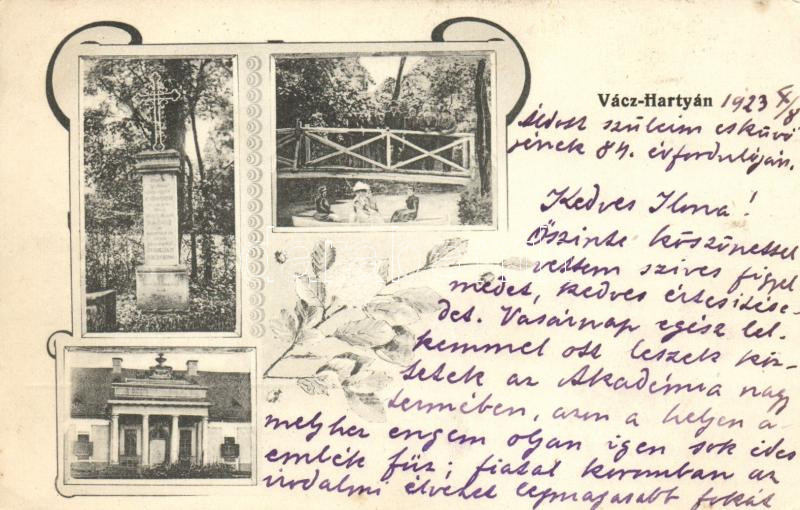 Vácz-Hartyán 1923 4/8
Áldott szüleim eskűvő
jének 84. évfordulóján.
Kedves Ilona!
Őszinte köszönettel
vettem szíves figyel
medet, kedves értesítése-
det. Vasárnap egész lel-
kemmel ott leszek köz-
tetek az Akadémia nagy
termében, azon a helyen a-
melyhez engem oljan igen sok édes
emlék fűz; fiatal koromban az
irodalmi élvezet legmagasabb fokát